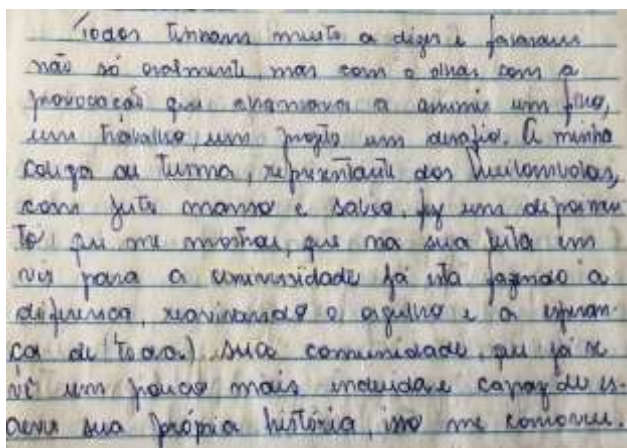 Todos tinham muito a dizer e falaram
não só oralmente, mas com o olhar com a
provocação que chamava a assumir um filho,
um trabalho, um projeto um desafio. A minha
colega de turma, representante dos Quilombolas,
com jeito manso e sábio, fez um depoimen
to que me mostrou, que na sua luta em
vir para a universidade já está fazendo a
diferença, reavivando o orgulho e a esperan-
ça de (toda) sua comunidade, que já se
vê um pouco mais incluida e capaz de es-
crever sua própria história, isso me comoveu.